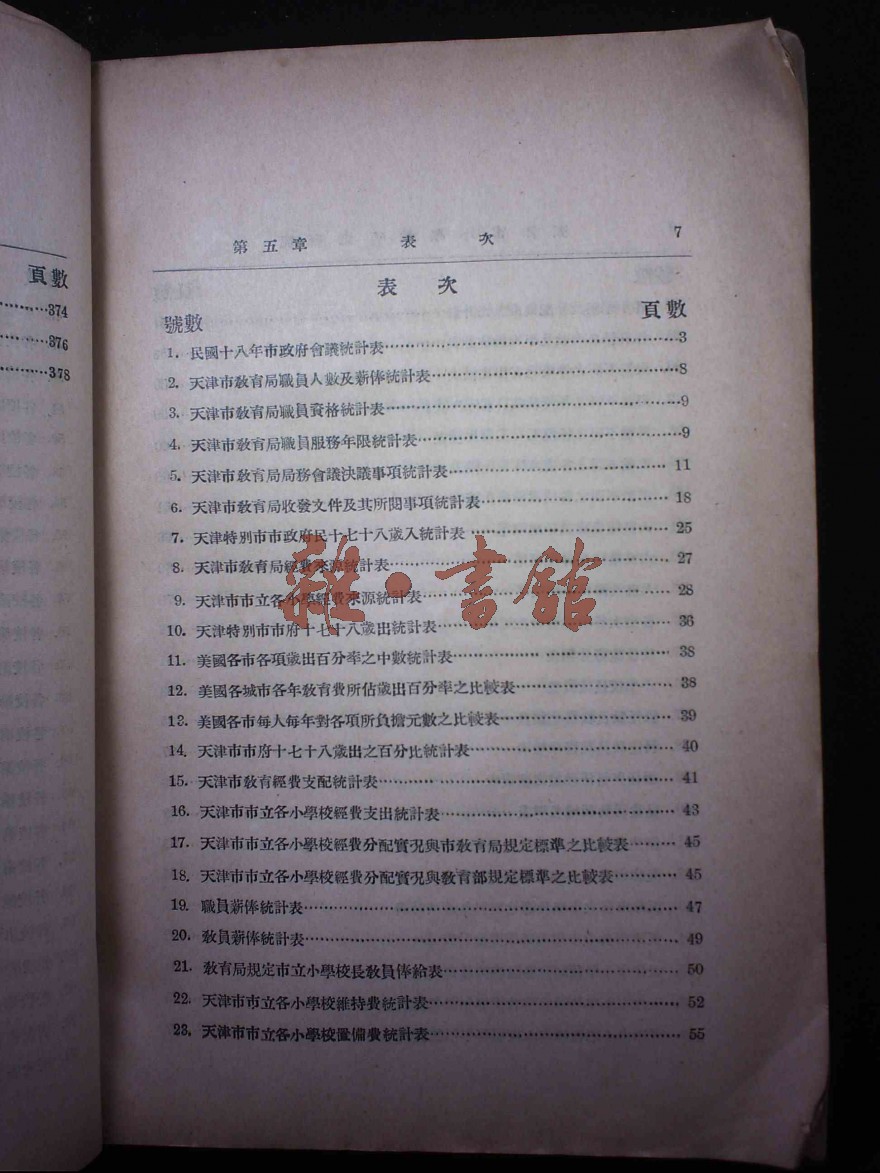 頁數
374
376
378
第五章 表次 7
表次
號數 頁數
1. 民國十八年市政府會議統計表 3
2. 天津市敎育局職員人數及薪俸統計表 8
3. 天津市敎育局職員資格統計表 9
4. 天津市敎育局職員服務年限統計表 9
5. 天津市敎育局局務會議決議事項統計表 11
6. 天津市敎育局收發文件及其所関事項統計表 18
7. 天津特别市市政府民十七十八歲入統計表 25
8. 天津市敎育局經費來源統計表 27
9. 天津市市立各小學經費來源統計表 28
10. 天津特别市市府十七十八歲出統計表 36
11. 美國各市各項歲出百分率之中數統計表 38
12. 美國各城市各年敎育費所佔歲出百分率之比較表 38
13. 美國各市每人每年對各項所負擔元數之比較表 39
14. 天津市市府十七十八歲出之百分比統計表 40
15. 天津市敎育經費支配統計表 41
16. 天津市市立各小學校經費支出統計表 43
17. 天津市市立各小學校經費分配實况與市敎育局規定標準之比較表 45
18. 天津市市立各小學校經費分配實况與敎育部規定標準之比較表 45
19. 職員薪俸統計表 47
20. 敎員薪俸統計表 49
21. 敎育局規定市立小學校長敎員俸給表 50
22. 天津市市立各小學校維持費統計表 52
23. 天津市市立各小學校置備費統計表 55
雜·書館